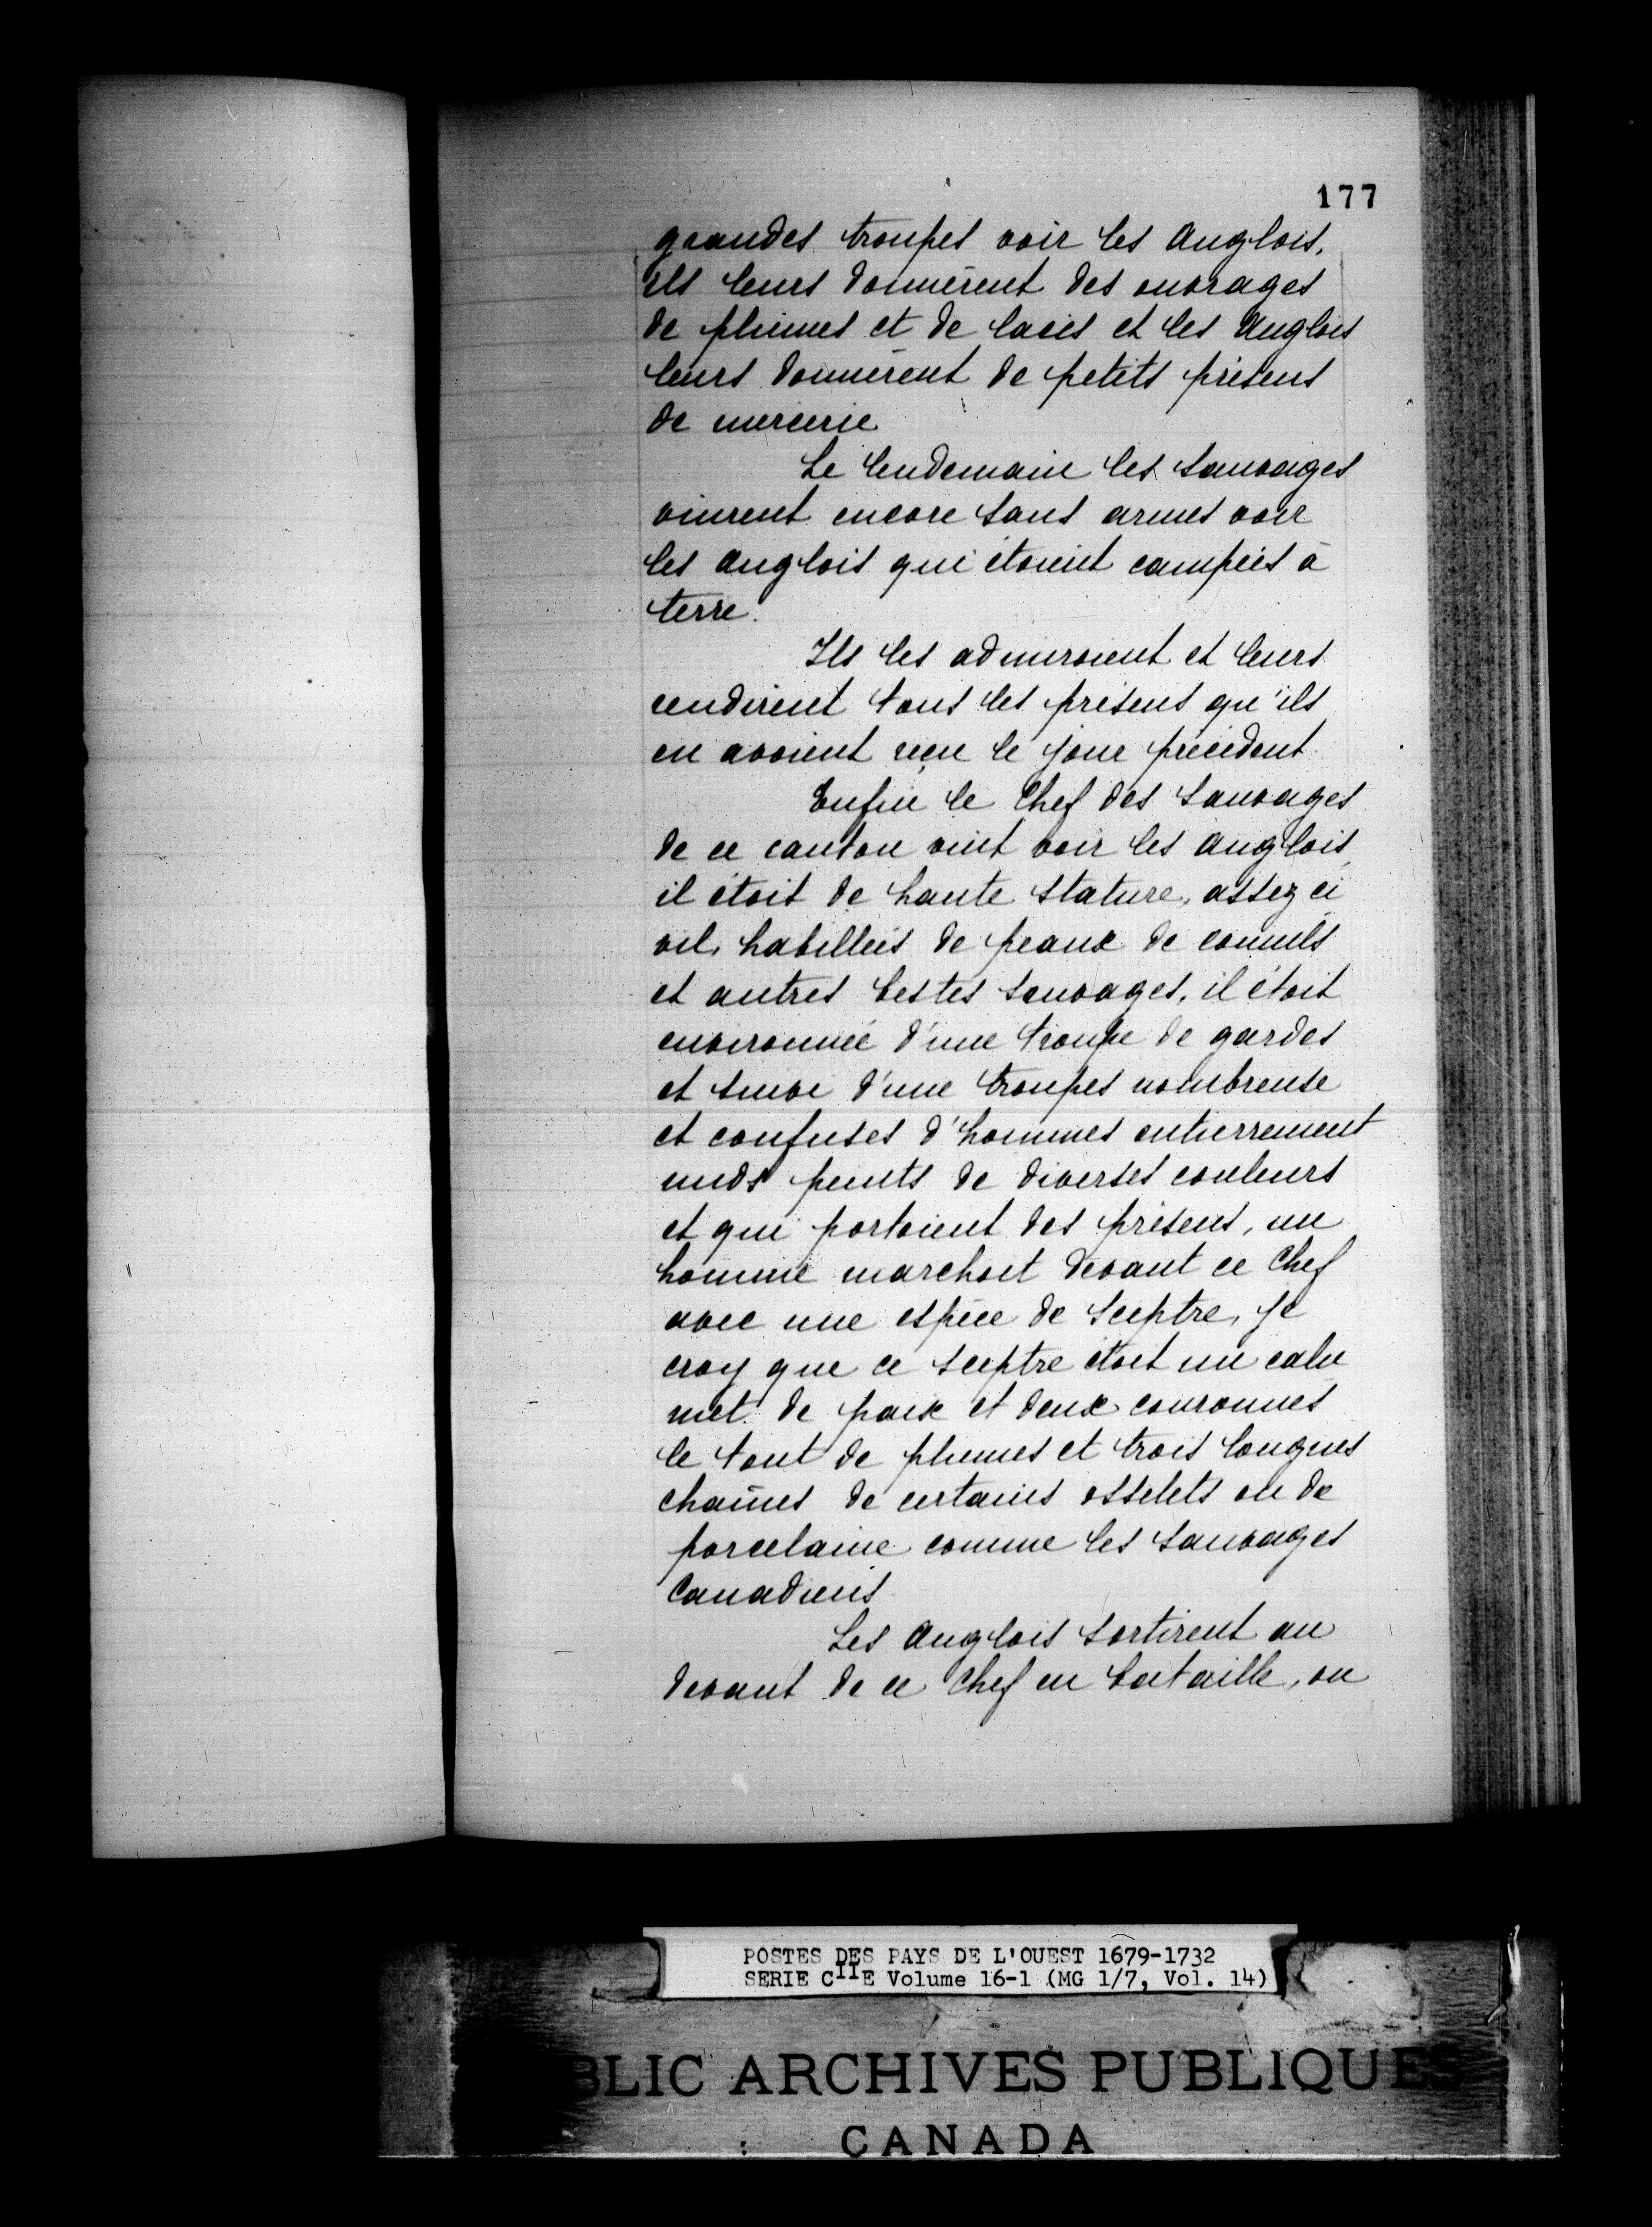 177
grandes troupes voir les Anglois,
ils leurs donnèrent des ouvrages
de plumes et de lacis et les Anglois
leurs donnèrent de petits présens
de mercerie
Le lendemain les sauvages
vinrent encore sans armes voir
les Anglois qui étoient campées à
terre.
Ils les admiroient et leurs
rendirent tous les présens qu'ils
en avoient reçu le jour précédent
Enfin le Chef des Sauvages
de ce canton vint voir les Anglois,
il étoit de haute stature, assez ci
vil, habillées de peaux de connils
et autres bestes sauvages, il étoit
environnée d'une troupe de gardes
et suivi d'une troupes nombreuse
et confuses d'hommes entierrement
nuds peints de diverses couleurs
et qui portoient des présens, un
homme marchoit devant ce Chef
avec une espèce de Sceptre, je
croy que ce sceptre étoit un calu
met de paix et deux couronnes
le tout de plumes et trois longues
chaînes de certains osselets ou de
porcelaine comme les sauvages
Canadiens
Les Anglois sortirent au
devant de ce Chef en bataille, on
POSTES DES PAYS DE L'OUEST 1679-1732
SERIE CIIE Volume 16-1 (MG 1/7, Vol. 14)
BLIC ARCHIVES PUBLIQUES
CANADA